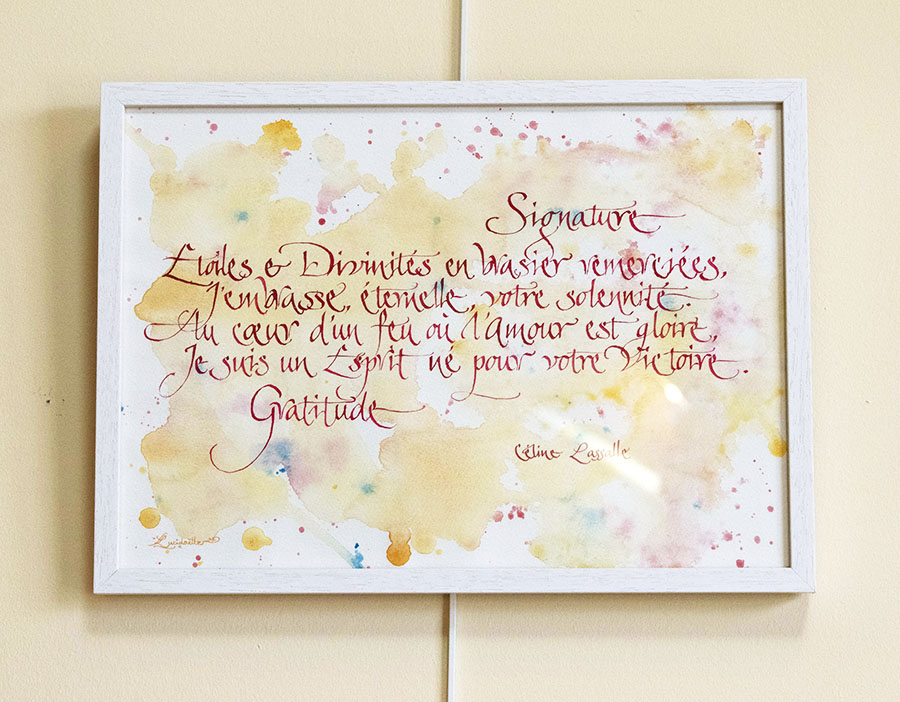 Signature
Etoiles & Divinités en brasier remerciées,
J'embrasse, éternelle, votre solennité.
Au cœur d'un feu où l'Amour est gloire,
Je suis un Esprit né pour votre Victoire.
Gratitude
Céline Lassalle